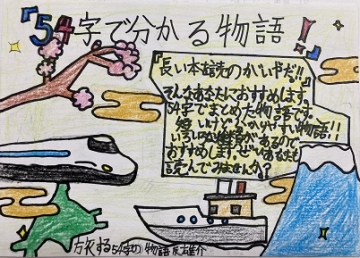 『54字で分かる物語!』
『長い本読のがいやだ!!』
そんなあなたにおすすめします。
54字でまとめた物語です。
短いけど、分かりやすい物語!!
いろいろな種類があるので、
おすすめします。ぜひあなたも
読んでみませんか?
旅する54字の物語 氏田雄介